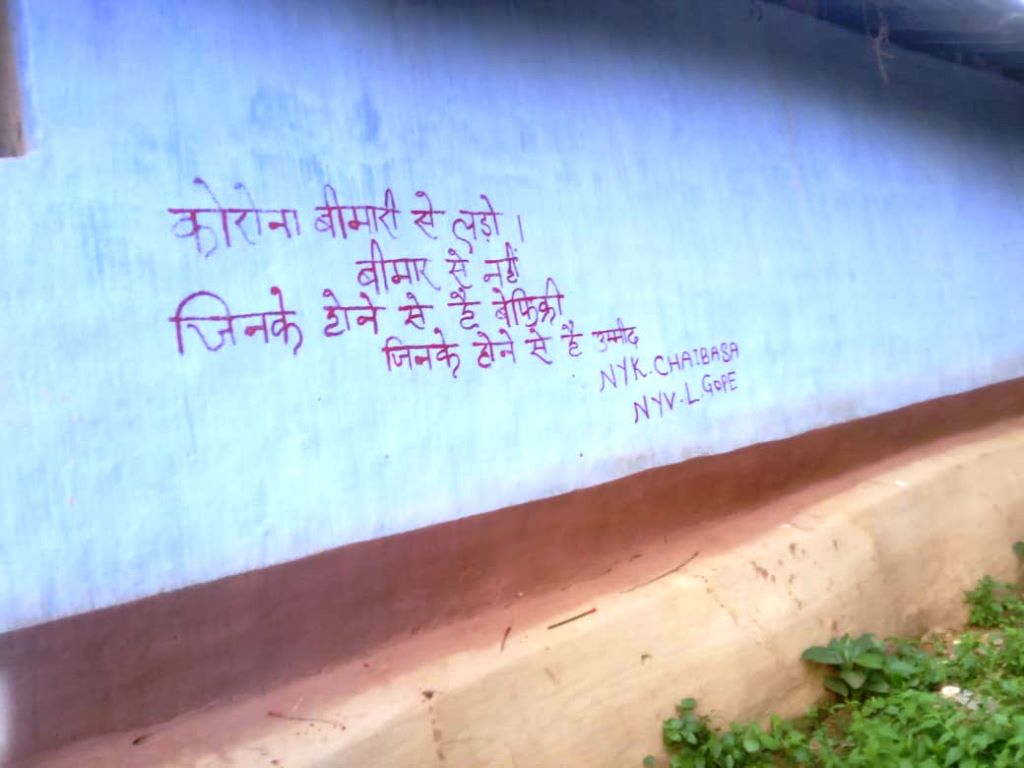 कोरोना बीमारी से लड़ो।
बीमार से नहीं
जिनके होने से है बेफिक्री
जिनके होने से है उम्मीद
NYK.CHAIBASA
NYV.L.GOPE